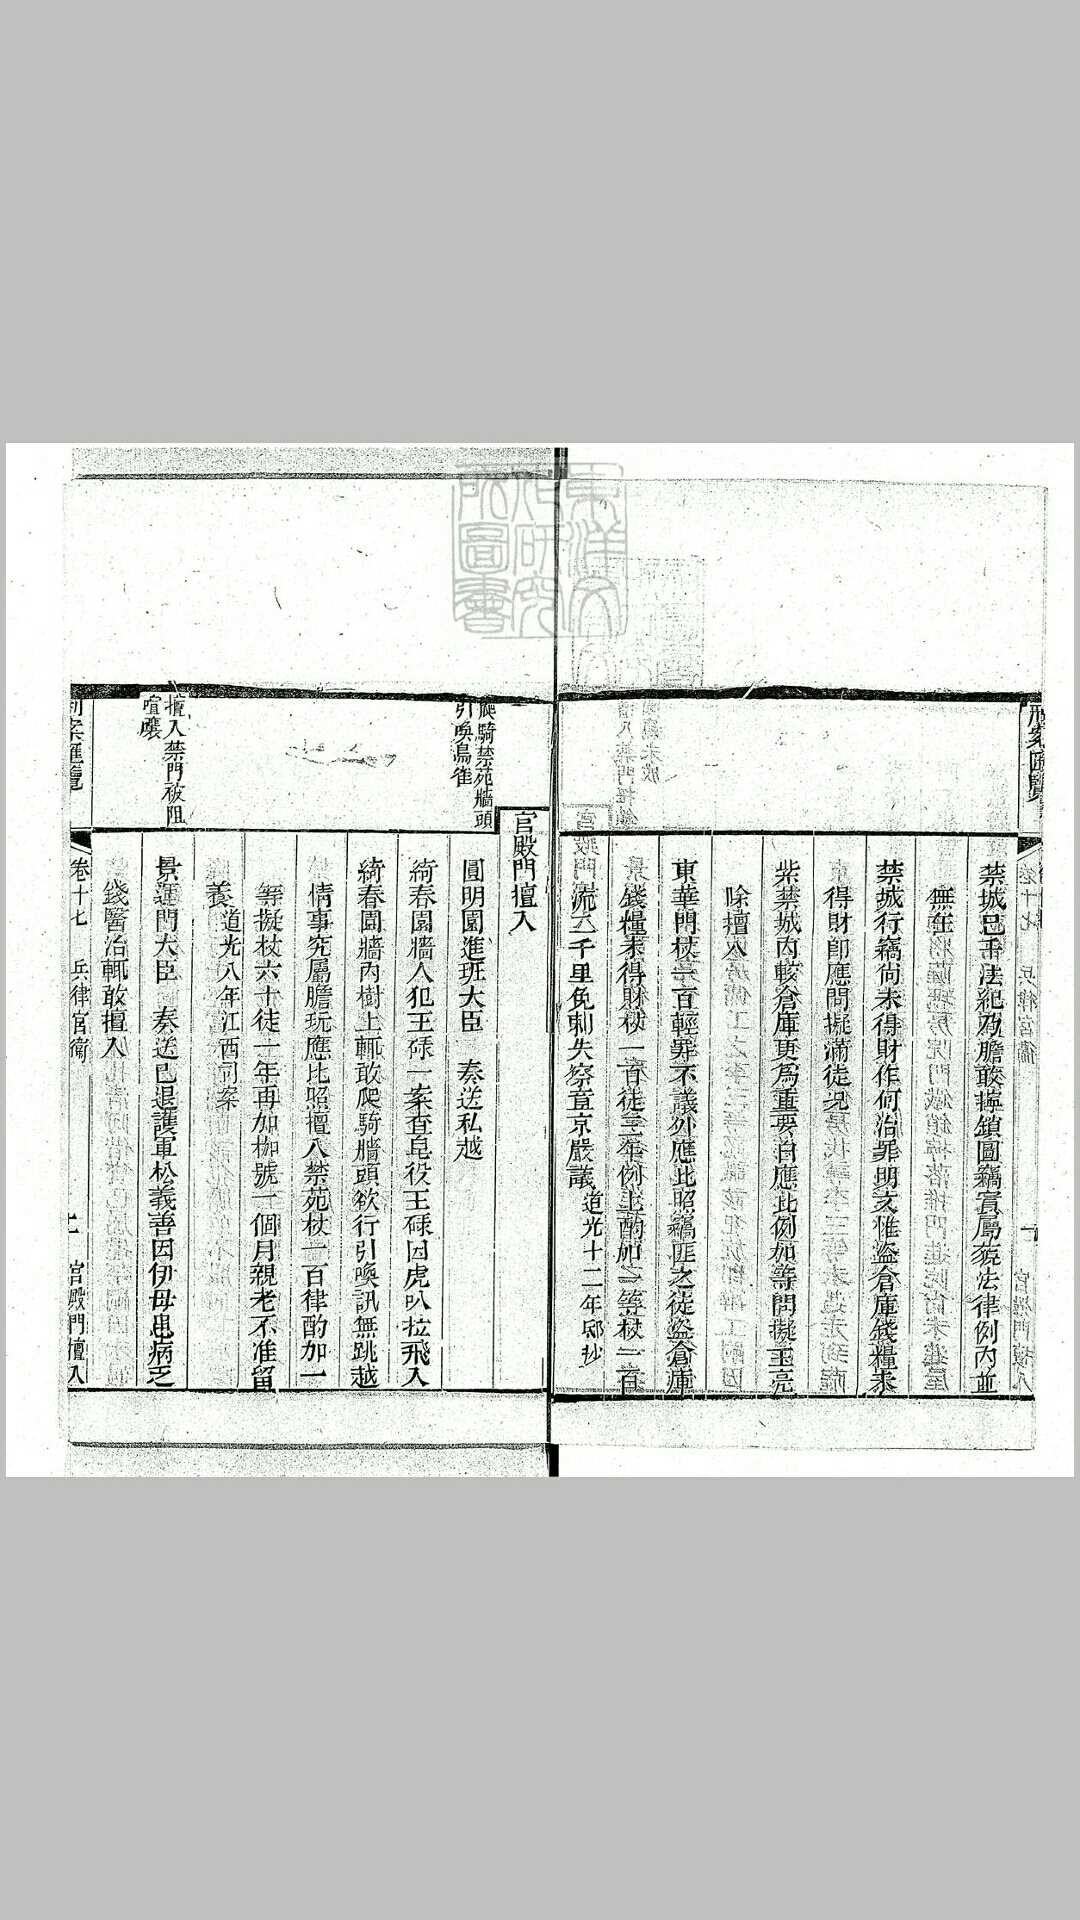 刑案匯覽
禁城已干法紀乃膽敢擰鎖圖竊實屬藐法律例內並
無在
禁城行竊尚未得財作何治罪明文惟盜倉庫錢糧未
得財即應問擬滿徒況
紫禁城內較倉庫更為重要自應比例加等問擬王亮
除擅入
東華門杖一百輕罪不議外應比照竊匪之徒盜倉庫
錢糧未得財杖一百徒三年例上酌加二等杖一百
流二千里免刺失察章京嚴議道光十二年邸抄
宮殿門擅入
爬騎禁苑牆頭
引喚鳥雀
圓明園進班大臣 奏送私越
綺春園牆人犯王碌一案查皂役王碌因虎叭拉飛入
綺春園牆內樹上輒敢爬騎牆頭欲行引喚訊無跳越
情事究屬膽玩應比照擅入禁苑杖一百律酌加一
等擬杖六十徒一年再加枷號一個月親老不准留
養道光八年江西司案
擅入禁門被阻
喧嚷
景運門大臣 奏送已退護軍松義善因伊母患病乏
錢醫治輒敢擅入
刑案匯覽 卷十七 兵律宮衛 宮殿門擅入